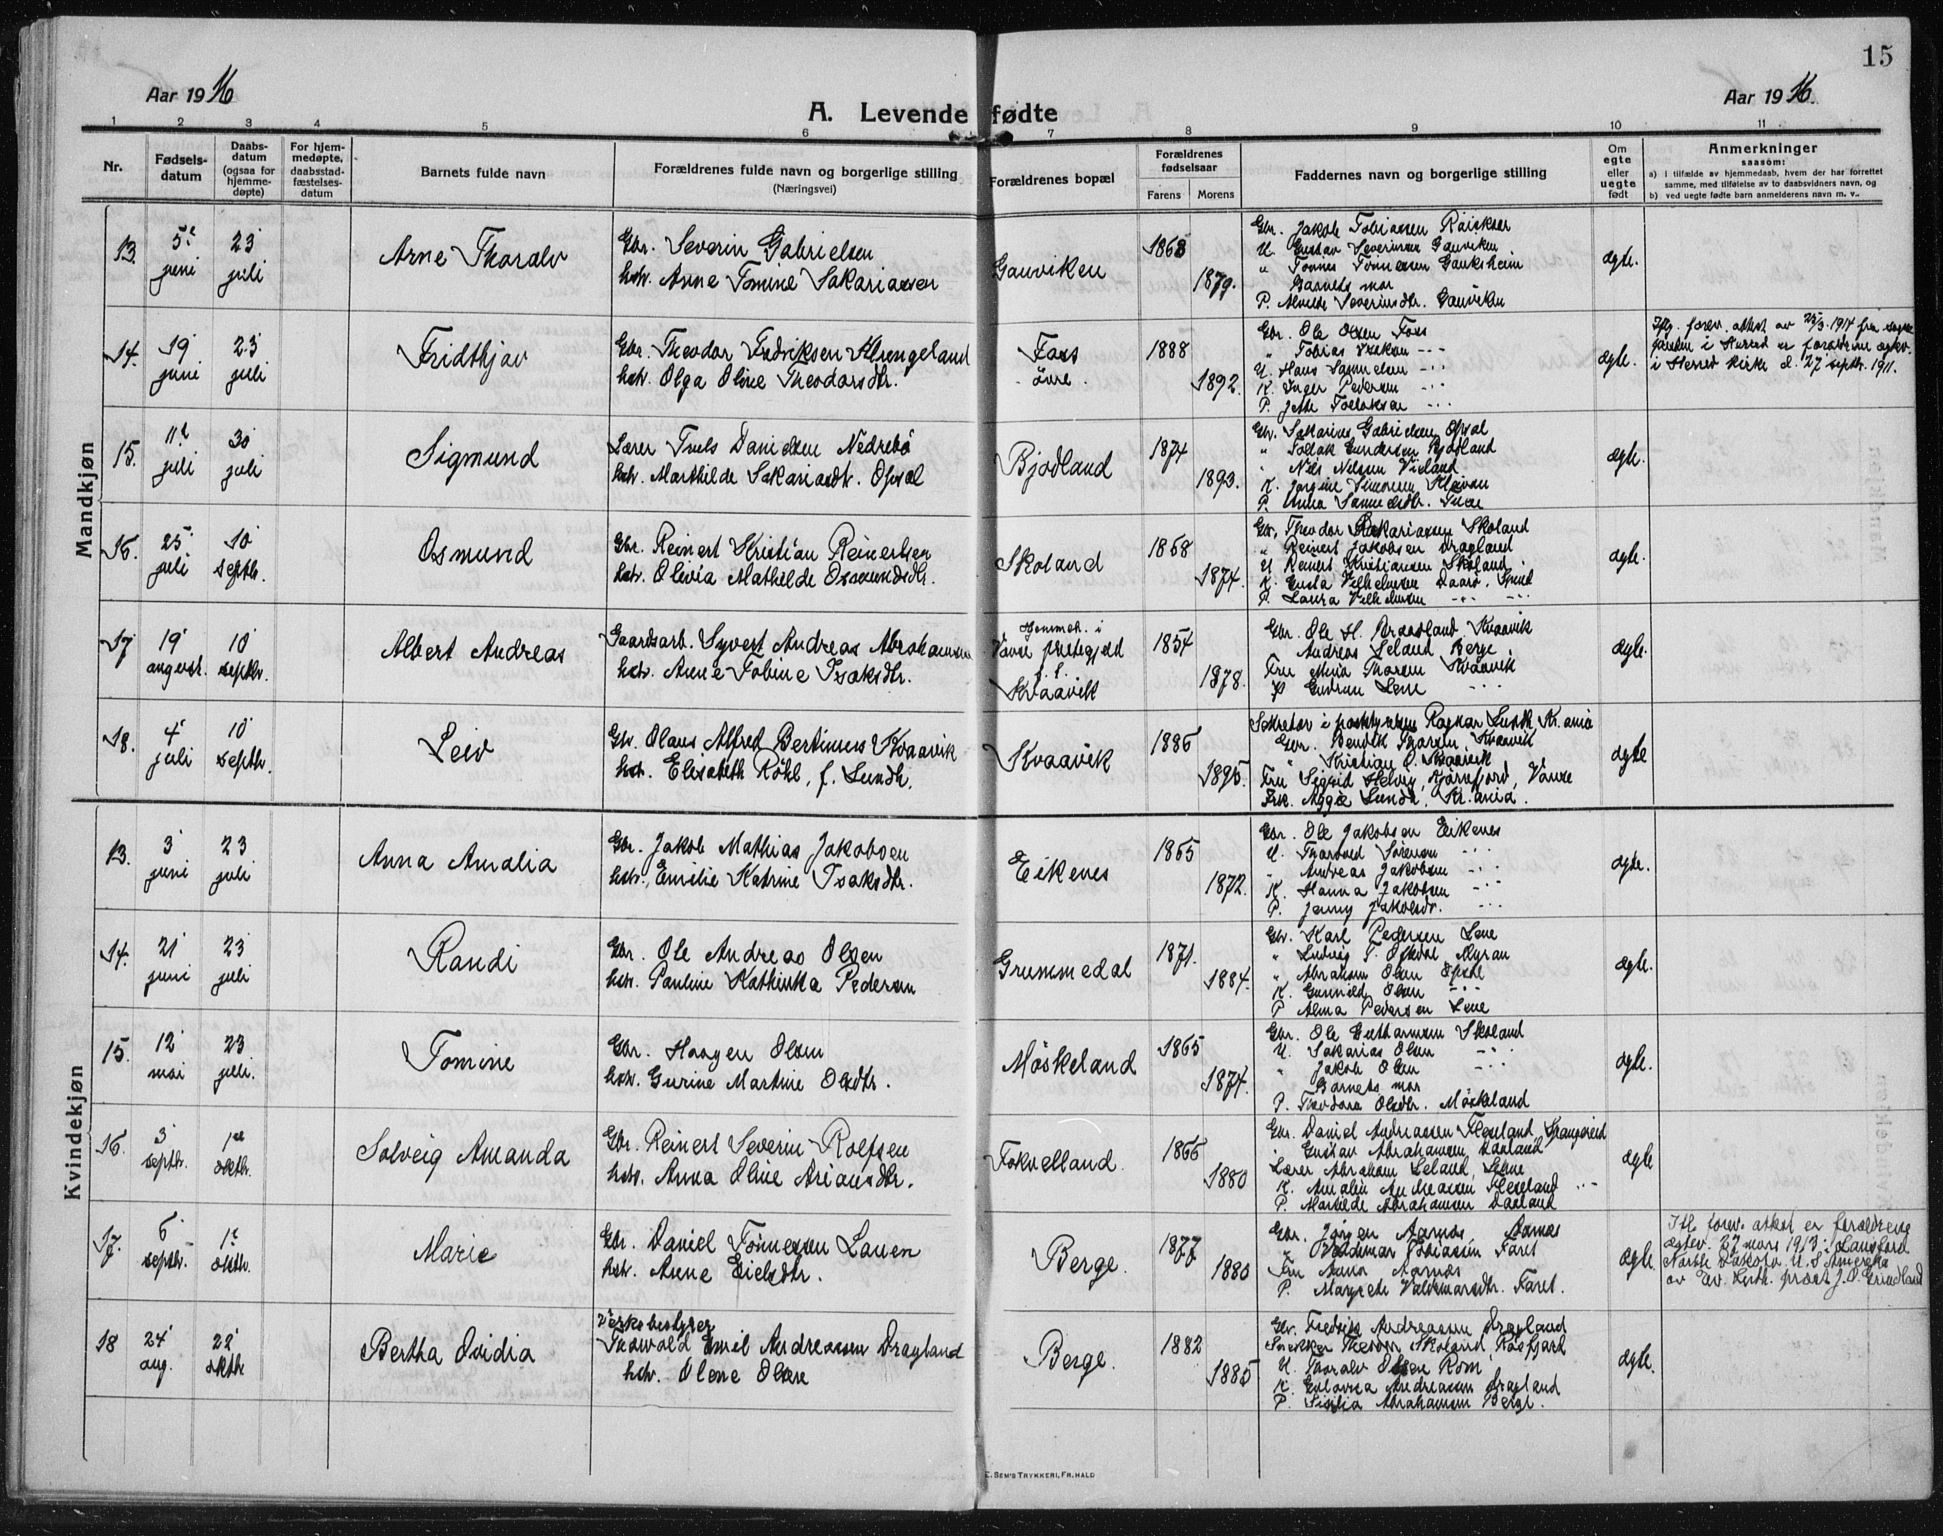 15
Aar 1916
A. Levende fødte
Aar 1916.
1 2 3 4 5 6 7 8 9 10 11
Nr.
Fødsels-
datum
Daabs-
datum
(ogsaa for
hjemme-
døpte)
For hjem-
medøpte,
daabsstad-
fæstelses-
datum
Barnets fulde navn
Forældrenes fulde navn og borgerlige stilling
(Næringsvei)
Forældrenes bopæl
Forældrenes
fødselsaar
Farens Morens
Faddernes navn og borgerlige stilling
Om
egte
eller
uegte
født
Anmerkninger
saasom:
a) i tilfælde av hjemmedaab, hvem der har forrettet
samme, med tilføielse av to daabsvidners navn, og
b) ved uegte fødte barn anmelderens navn m. v..
Mandkjøn
13. 5te juni 23 juli
Arne Thoralv
Gbr. Severin Gabrielsen
hstr. Anne Tomine Sakariassen
Gauviken
1868
1879.
Gbr. Jakob Tobiassen
U. Gustav Severinsen Gauviken
" Tønnes Tønnessen Gauksheim
Barnets mor
P. Almilde Severinsdtr. Gauviken
ægte.
14. 19 juni 23 juli
Fridthjov
Gbr. Theodor Fredriksen
hstr. Olga Oline Theodorsdtr.
Foss
øvre.
1888
1892.
Gbr. Ole Olsen Foss
" Tobias --
U. Hans Samuelsen --
K. Inger Pedersen --
P. Jette --
ægte.
Iflg. forev. attest av 25/3 1917 fra sogne
i Herred er forældrene ægtev.
i Herred kirke d. 27 septbr. 1911.
15. 11te juli 30 juli
Sigmund
Lærer Truls Danielsen Nedrebø
hstr. Marthilde Sakariasdtr. Opsal
Bjodland
1874
1893.
Gbr. Sakarias Gabrielsen Opsal
" Gundersen Bjodland
" Nils Nilsen
K. Jorgine Simonsen
P. Anna Samuelsdtr.
ægte.
16. 25 juli 10 septbr.
Osmund
Gbr. Reinert Kristian Reinertsen
hstr. Olivia Mathilde Osmundsdtr.
Skoland
1868
1874.
Gbr. Theodor Sakariassen Skoland
" Reinert Jakobsen Dragland
U. Reinert Kristiansen Skoland
K. Gusta Vilhelmsen Spind
P. Laura Vilhelmsen -- --
ægte.
17 19 august. 10 septbr.
Albert Andreas
Gaardsarb. Syvert Andreas Abrahamsen
hstr. Anne Tobine Isaksdtr.
Hjemmeh. i
Vanse prestegjeld
Kvaavik
1854
1878.
Gbr. Ole H. Braadland Kvaavik
Andreas Leland Berge
Fru Mina Thorsen Kvaavik
P Gudrun Lene --
ægte.
18. 4 juli 10 septbr.
Leiv
Gbr. Olaus Alfred Bertinius Kvaavik
hstr. Elisabeth Röhl, f. Lundh.
Kvaavik
1886
1895.
Sekretær i Ragnar Lundh, Kr.ania
Gbr. Bendik Thorsen, Kvaavik
" Kristian O. Kvaavik
Fru Sigrid Vanse
Frk. Aggie Lundh, Kr.ania.
ægte
Kvindekjøn
13. 3 juni 23 juli
Anna Amalia
Gbr. Jakob Mathias Jakobsen
hstr. Emilie Katrine Isaksdtr.
Eikenes
1865
1872.
Gbr. Ole Jakobsen Eikenes
U. Thorvald Sørensen --
" Andreas Jakobsen --
K. Hanna Jakobsen --
P. Jenny Jakobsdtr. --
ægte.
14. 21 juni 23 juli
Randi
Gbr. Ole Andreas Olsen
hstr. Pauline Kathinka Pedersen
Grummedal
1871.
1884.
Gbr. Karl Pedersen Lene
" Ludvig T. Myran
" Abraham Olsen Opsal
K. Gunvild Olsen --
P. Alma Pedersen Lene
ægte.
15. 12 mai 23 juli.
Tomine
Gbr. Haagen Olsen
hstr. Gurine Martine Olsdtr.
Møskeland
1865
1874.
Gbr. Ole Guttormsen Skoland
U. Sakarias Olsen --
" Jakob Olsen --
Barnets mor
P. Theodora Olsdtr. Møskeland
ægte.
16. 3 septbr. 1ste oktbr.
Solveig Amanda
Gbr. Reinert Severin Rolfsen
hstr. Anna Oline Ariansdtr.
Fokvelland.
1866
1880
Gbr. Daniel Andreassen Fleseland
" Gustav Abrahamsen
Lærer Abraham Leland, Lene
K. Amalia Andreassen Fleseland --
P. Mathilde Abrahamsen
ægte
17. 6 septbr. 1te oktbr.
Marie
Gbr. Daniel Tønnessen Lauen
hstr. Anne Eielsdtr.
Berge.
1877
1880
Gbr. Jørgen Aarnes, Aarnes
" Valdemar Tobiassen Faret
Fru Anna Aarnes
P. Margrete Valdemarsdtr. Faret.
ægte.
Ifl. forev. attest er forældrene
ægtev. 27 mars 1913 i Lansford
North Dakota U. S Amerika
av ev. luth. prest J. O. Grindland
18 24 aug. 22 oktbr
Bertha Ovidia
Verksbestyrer
Thorvald Emil Andreassen Dragland
hstr. Olene Olsen
Berge.
1882
1885
Gbr. Fredrik Andreassen Dragland
Snekker Theodor Skoland, Rosfjord
U. Thoralv Olsen Rom
K. Andreassen Dragland
P. Sisilia Abrahamsen Berge.
ægte.
E. SEM'S TRYKKERI, FR.HALD